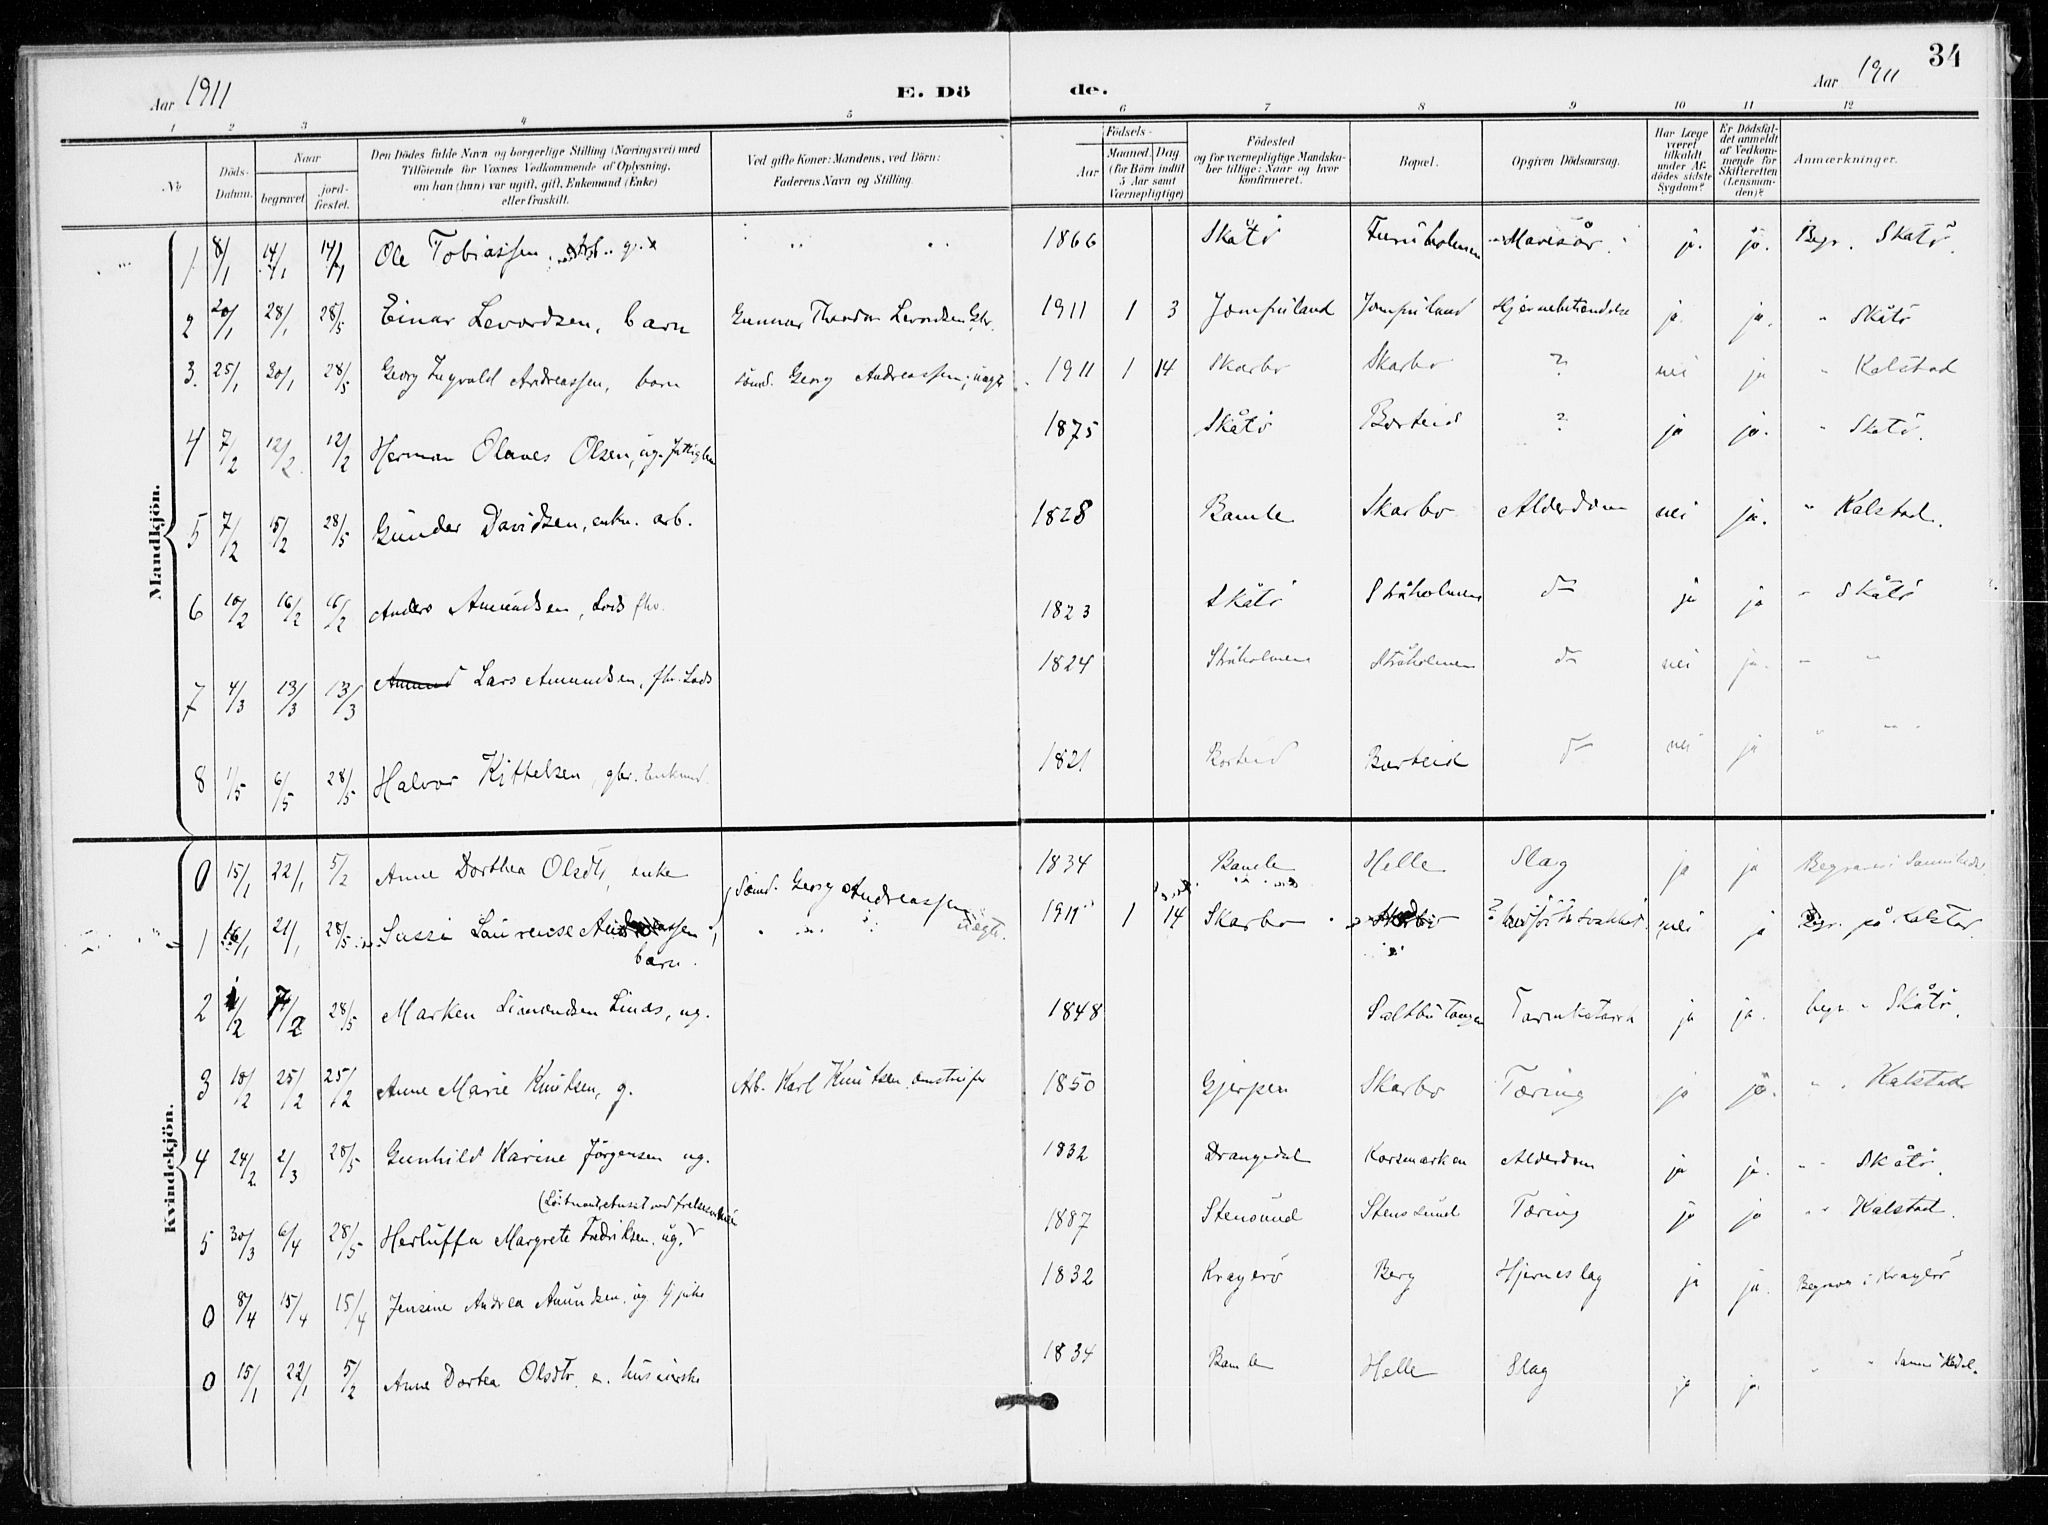 34
Aar 1911
E. Dö
de.
Aar 1911
1 2 3 4 5 6 7 8 9 10 11 12
No
Döds-Datum.
Naar
begravet
jord-fæstet.
Den Dödes fulde Navn og borgerlige Stilling (Næringsvei) med
Tilföiende for Voxnes Vedkommende af Oplysning,
om han (hun) var ugift, gift, Enkemand (Enke)
eller fraskilt.
Ved gifte Koner: Mandens, ved Börn:
Faderens Navn og Stilling.
Födsels-
Aar
Maaned. Dag
(for Börn indtil
5 Aar samt
Værnepligtige)
Födested
og for værnepligtige Mandska-
ber tillige: Naar og hvor
konfirmeret.
Bopæl.
Opgiven Dödsaarsag.
Har Læge
været
tilkaldt
under Af-
dödes sidste
Sygdom?
Er Dödsfal-
det anmeldt
af Vedkom-
mende for
Skifteretten
(Lensman-
den)?
Anmærkninger.
Mandkjön.
1 8/1 14/1 14/1 Ole Tobiassen, 1866 Skåtö Furuholmen ja. ja. Begr. Skåtö.
2 20/1 28/1 28/5 Einar Levordsen, barn Gunnar Levordsen 1911 1 3 Jomfruland Jomfruland Hjernebetændelse ja. ja. " Skåtö
3. 25/1 30/1 28/5 Georg Ingvald Andreassen, barn Sömd. Georg Andreassen, uægte 1911 1 14 Skarbo Skarbo ? nei ja " Kalstad
4 7/2 12/2 12/2 Herman Olaves Olsen, ug. 1875 Skåtö Barteid ? ja ja. " Skåtö.
5 7/2 15/2 28/5 Gunder Davidsen, enkm. arb. 1828 Bamle Skarbo Alderdom nei ja. " Kalstad.
6 10/2 16/2 16/2 Anders Amundsen, Lods fhv. 1823 Skåtö Stråholmen do ja ja " Skåtö
7 4/3 13/3 13/3 Amund Lars Amundsen, fhv. Lods 1824 Stråholmen Stråholmen do nei ja. " "
8 1/5 6/5 28/5 Halvor Kittelsen, gbr. Enkmd. 1821 Barteid Barteid do nei ja " "
Kvindekjön.
0 15/1 22/1 5/2 Anne Dorthea Olsdtr, enke 1834 Bamle Helle Slag ja ja Begraves i Sannikedal
1 16/1 21/1 28/5 Laurense Andreassen, barn. Sömd. Georg Andreassen uægte. 1911 1 14 Skarbo Skarbo ? nei ja Begr. på Kalstad.
2 1/2 7/2 28/5 Marken Simondsen Linås, ug. 1848 Saltbutangen Tarmkatarrh ja ja. begr. " Skåtö.
3 18/2 25/2 25/2 Anne Marie Knutsen, g. Arb. Karl Knutsen 1850 Gjerpen Skarbo Tæring ja ja. " " Kalstad
4 24/2 2/3 28/5 Gunhild Karine Jörgensen ug. 1832 Drangedal Korsmarken Alderdom ja ja. " " Skåtö.
5 30/3 6/4 28/5 Herluffa Margrete Fredriksen, ug. 1887 Stensund Stensund Tæring ja ja " " Kalstad.
0 8/4 15/4 15/4 Jensine Andrea Amundsen, ug. tj. pike 1832 Kragerö Berg Hjerneslag ja ja. Begraves i Kragerö
0 15/1 22/1 5/2 Anne Dortea Olsdtr. e. 1834 Bamle Helle Slag ja ja. " " Sannikedal.